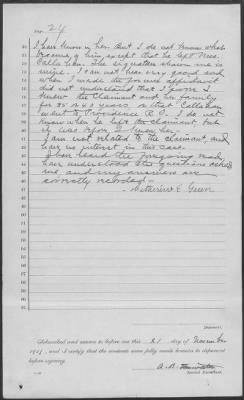 No. 24
I have known her. But I do not know what
became of him except that he left Mrs.
Callahan. The signature shown me is
mine. I can not hear very good and
when I made the former affidavit
did not understand that I swore I
knew the claimant and her family
for 35 years, or that Callahan
went to Providence R.I. I do not
know when he left the claimant, but
it was before I knew her.
I am not related to the claimant, and
have no interest in this case.
I have heard the foregoing read,
have understood the questions asked
me, and my answers are
correctly recorded.
Catherine E. Green
Deponent.
Subscribed and sworn to before me this 21 day of November
190, and I certify that the contents were fully made known to deponent
before signing.
A. D.
Special Examiner.